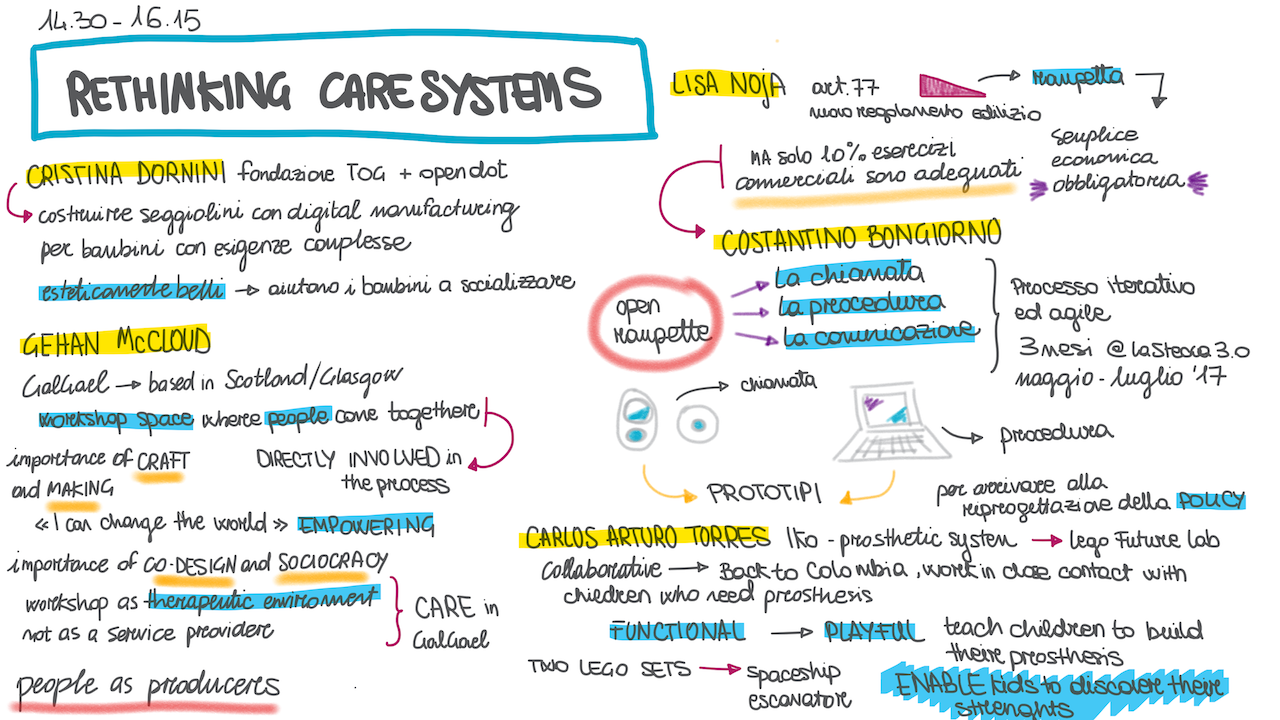 14.30 - 16.15
RETHINKING CARE SYSTEMS
CRISTINA DORNINI fondazione TOG + opendot
costruire seggiolini con digital manufacturing
per bambini con esigenze complesse
esteticamente belli → aiutano i bambini a socializzare
GEHAN McCLOUD
GalGael → based in Scotland/Glasgow
workshop space where people come together
DIRECTLY INVOLVED in
the process
importance of CRAFT
and MAKING
« I can change the world » EMPOWERING
importance of CO-DESIGN and SOCIOCRACY
workshop as therapeutic enviroment
not as a service provider
CARE in
GalGael
people as producers
LISA NOJA art.77
nuovo regolamento edilizio
rampetta
semplice
economica
obbligatoria
MA solo 10% esercizi
commerciali sono adeguati
COSTANTINO BONGIORNO
open
rampette
La chiamata
La procedura
La comunicazione
Processo iterativo
ed agile
3 mesi @LaStecca3.0
maggio - luglio '17
chiamata
procedura
PROTOTIPI
per arrivare alla
riprogettazione della POLICY
CARLOS ARTURO TORRES IKO - prosthetic system → lego Future Lab
Collaborative → Back to Colombia, work in close contact with
children who need prosthesis
FUNCTIONAL → PLAYFUL teach children to build
their prosthesis
TWO LEGO SETS → spaceship
escavatore
ENABLE kids to discover their
strenghts